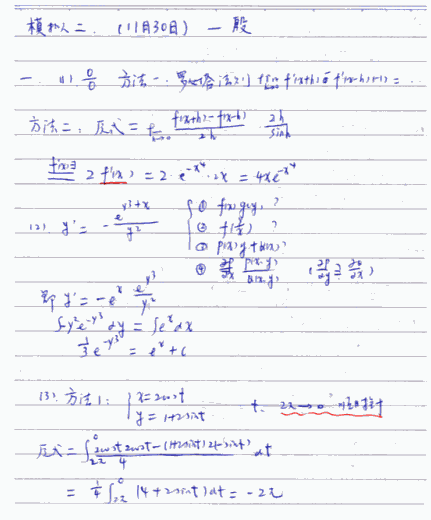 模拟二. (11月30日) 一般
一. (1) 0/0 方法一: f'(x+h) - f'(x-h)(-1) = …
方法二: 原式 = lim_{h→0} f(x+h)-f(x-h)/2h · 2h/sinh
f'(x)∃ 2f'(x) = 2·e^{-x^4}·2x = 4xe^{-x^4}
(2) y' = - e^{y^3+x}/y^2 { ① f(x)g(y) ?
② f(y/x) ?
③ p(x)y+Q(x) ?
④ P(x,y)/Q(x,y) (∂P/∂y ?= ∂Q/∂x)
即 y' = -e^x e^{y^3}/y^2
∫-y^2e^{-y^3} dy = ∫e^x dx
1/3 e^{-y^3} = e^x + C
(3). 方法1: { x=2cost
y = 1+2sint t. 2π→0
原式 = ∫_{2π}^{0} 2cost 2cost-(1+2sint)2(-sint)/4 dt
= 1/4 ∫_{2π}^{0} (4+2sint)dt = -2π